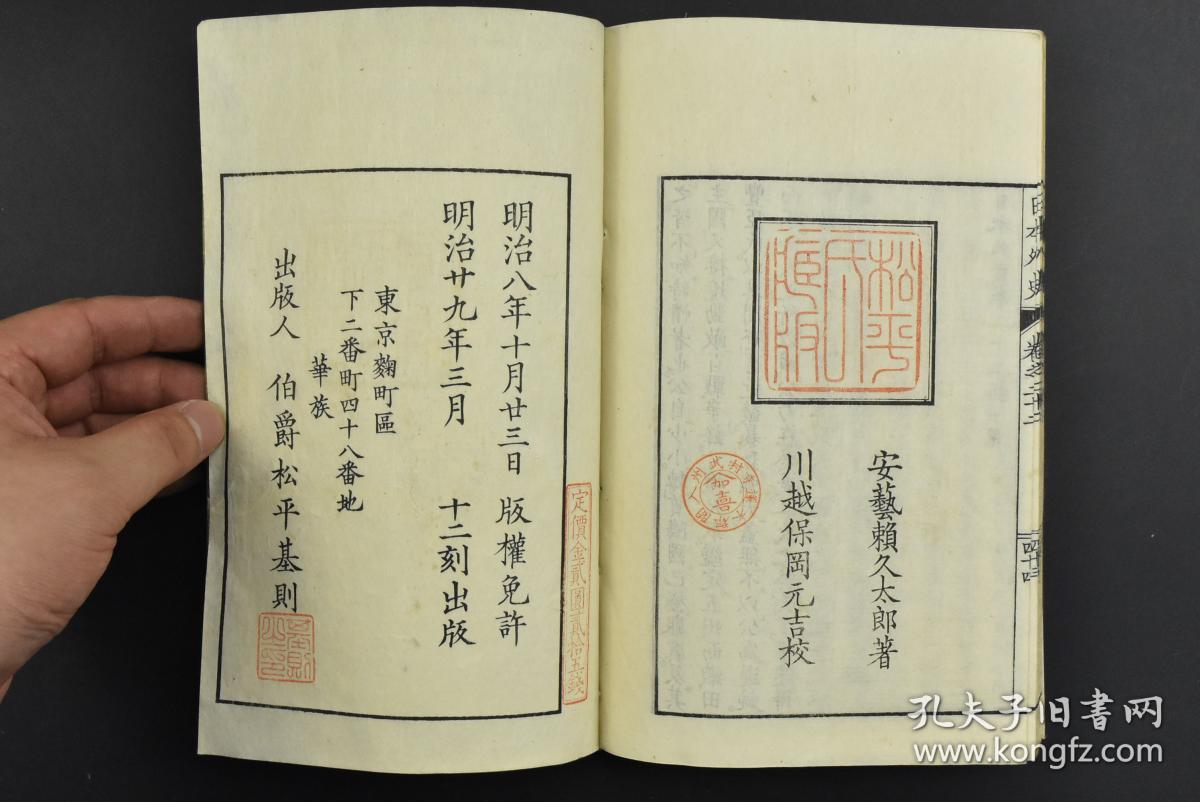 日本外史
卷之二十二
松平氏藏版
安藝賴久太郎著
川越保岡元吉校
加喜
明治八年十月廿三日 版權免許
明治廿九年三月 十二刻出版
東京麴町區
下二番町四十八番地
華族
出版人 伯爵松平基則
定價金貳圓貳拾五錢
孔夫子旧书网
www.kongfz.com